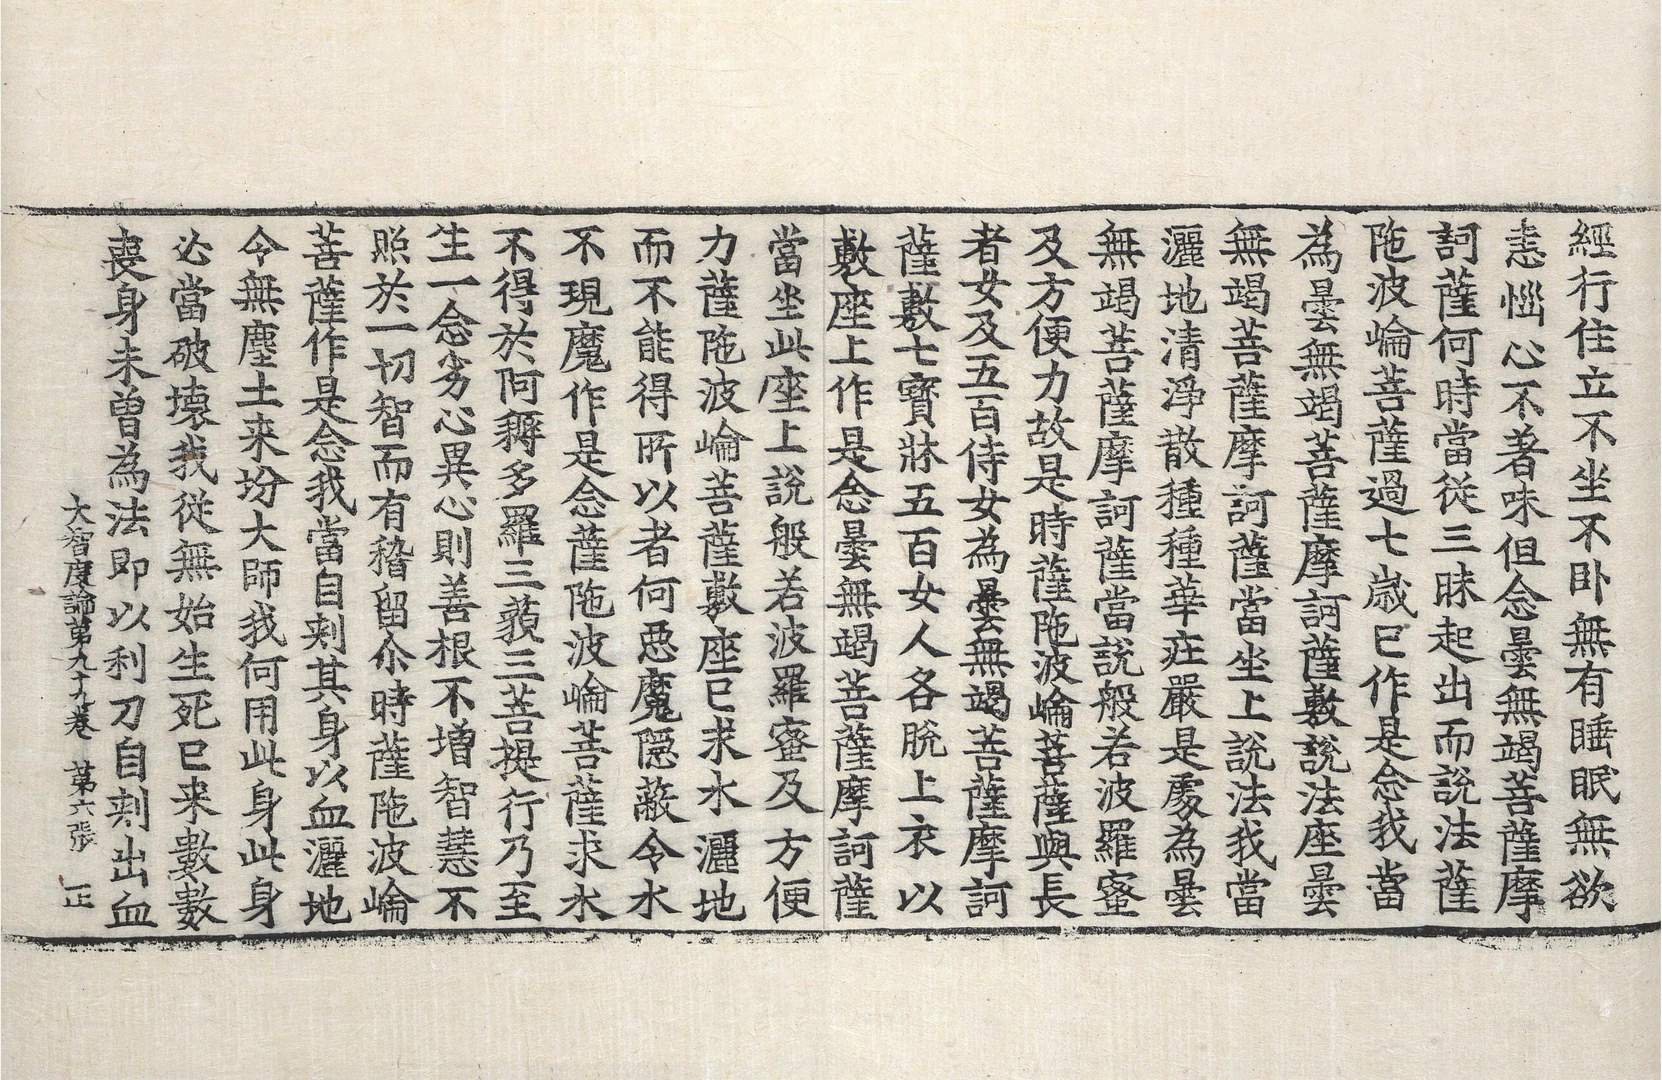 經行住立不坐不卧無有睡眠無欲
恚惱心不著味但念曇無竭菩薩摩
訶薩何時當從三昧起出而說法薩
陁波崘菩薩過七歲已作是念我當
為曇無竭菩薩摩訶薩敷說法座曇
無竭菩薩摩訶薩當坐上說法我當
灑地清淨散種種華莊嚴是處為曇
無竭菩薩摩訶薩當說般若波羅蜜
及方便力故是時薩陁波崘菩薩與長
者女及五百侍女為曇無竭菩薩摩訶
薩敷七寶牀五百女人各脫上衣以
敷座上作是念曇無竭菩薩摩訶薩
當坐此座上說般若波羅蜜及方便
力薩陁波崘菩薩敷座已求水灑地
而不能得所以者何惡魔隱蔽令水
不現魔作是念薩陁波崘菩薩求水
不得於阿耨多羅三藐三菩提行乃至
生一念劣心異心則善根不增智慧不
照於一切智而有稽留尒時薩陁波崘
菩薩作是念我當自刺其身以血灑地
令無塵土来坌大師我何用此身此身
必當破壞我從無始生死已来數數
喪身未曾為法即以利刀自刺出血
大智度論第九十九卷 第六張 正